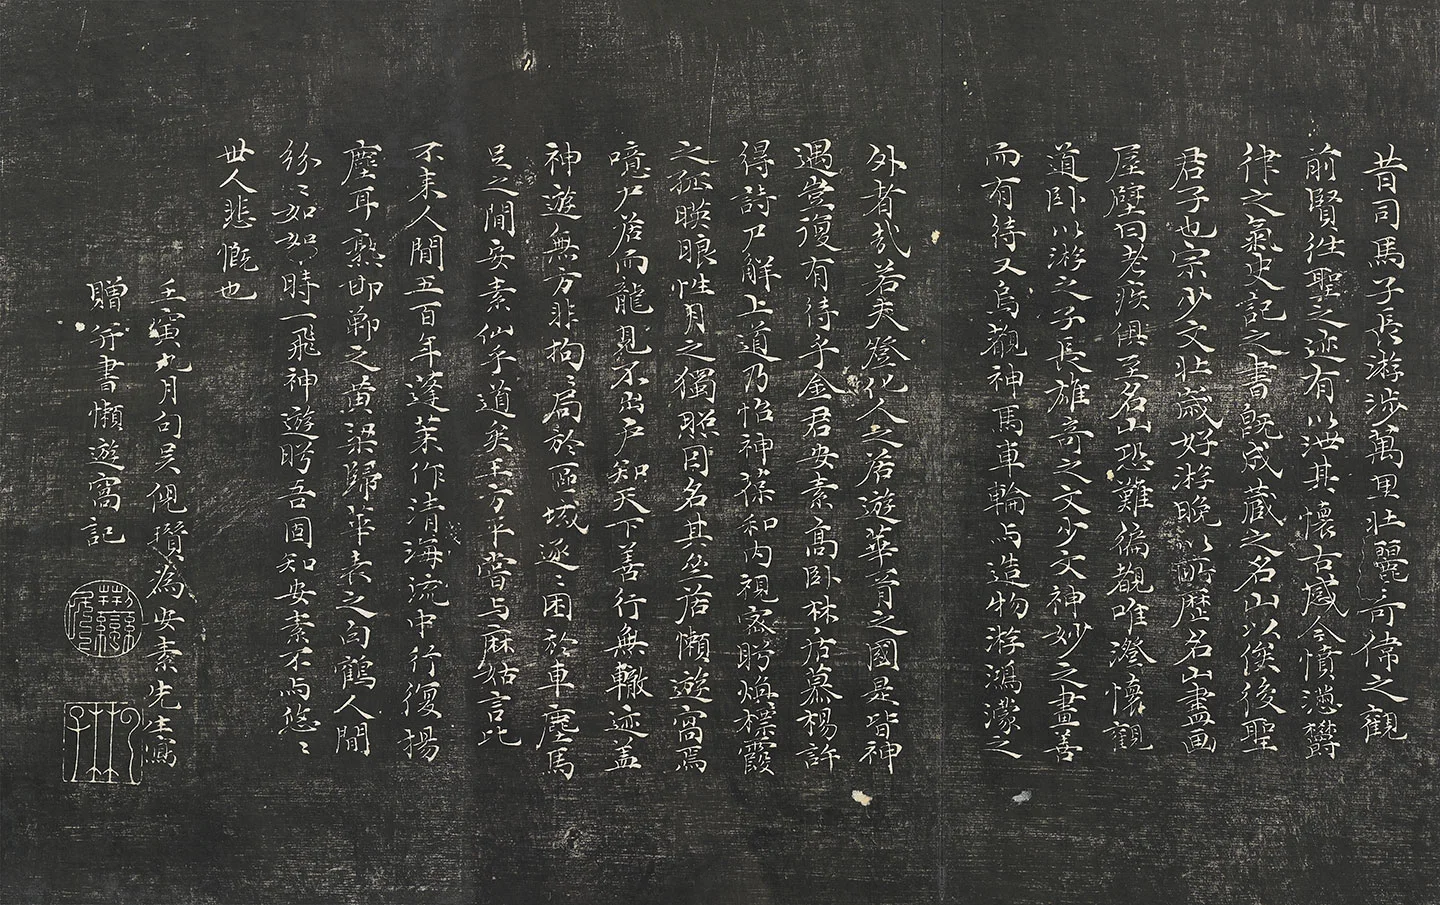 昔司馬子長游涉萬里壯麗奇偉之觀
前賢往聖之迹有以泄其懷古感今憤懣欝
律之氣史記之書既成蔵之名山以俟後聖
君子也宗少文壯歲好游晚以所歷名山盡画
屋壁曰老疾俱至名山恐難徧觀唯澄懷觀
道卧以游之子長雄奇之文少文神妙之畫善
而有待又烏觀神馬車輪与造物游鴻濛之
外者哉若夫登化人之居遊華胥之國是皆神
遇豈復有待乎金君安素高卧林居慕楊許
得詩尸解上道乃怡神葆和内視密盻煥標霞
之孤暎眼性月之獨照因名其丘居懶遊窩焉
噫尸居而龍見不出戶知天下善行無轍迹盖
神遊無方非拘〻局於區域逐〻困於車塵馬
足之間安素仙乎道矣王方平嘗与麻姑言比
不来人間五百年蓬萊作清海流中行復揚
塵耳熟邯鄲之黄粱歸華表之白鶴人間
紛〻如如時一飛神遊盻吾固知安素不与悠〻
世人悲慨也
壬寅九月句吴倪瓚為安素先生寫
贈并書懶遊窩記